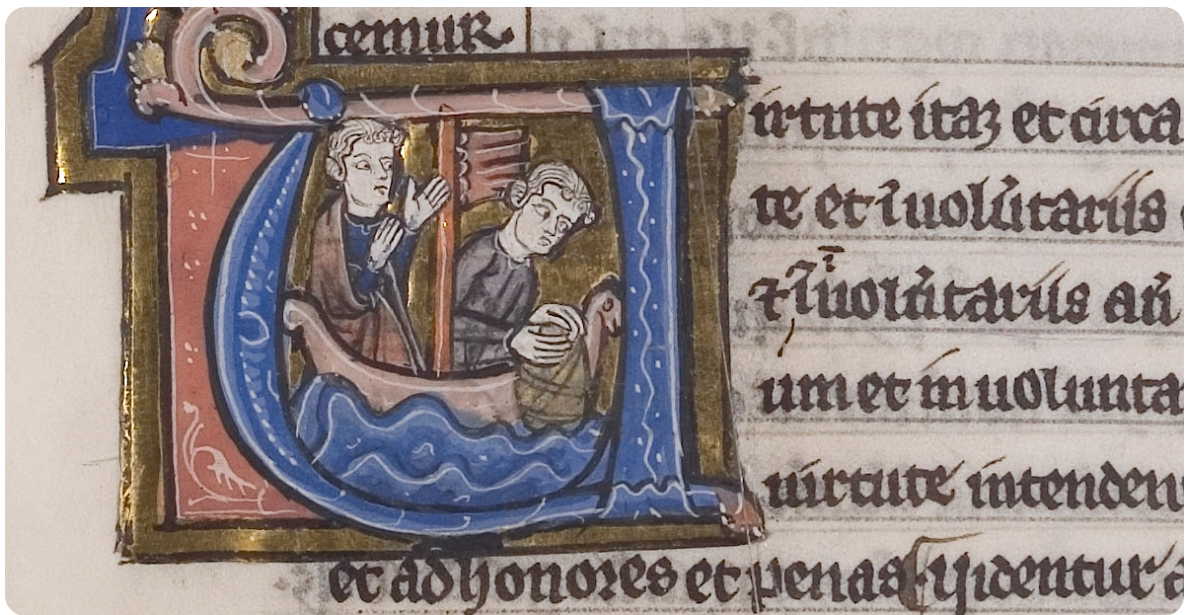 cemur.
Uirtute itaqꝫ et circa
te et ī uolūtariis
⁊ ī īuolūtariis
um et inuolunta
uirtute intenden
et ad honores et penas uidentur